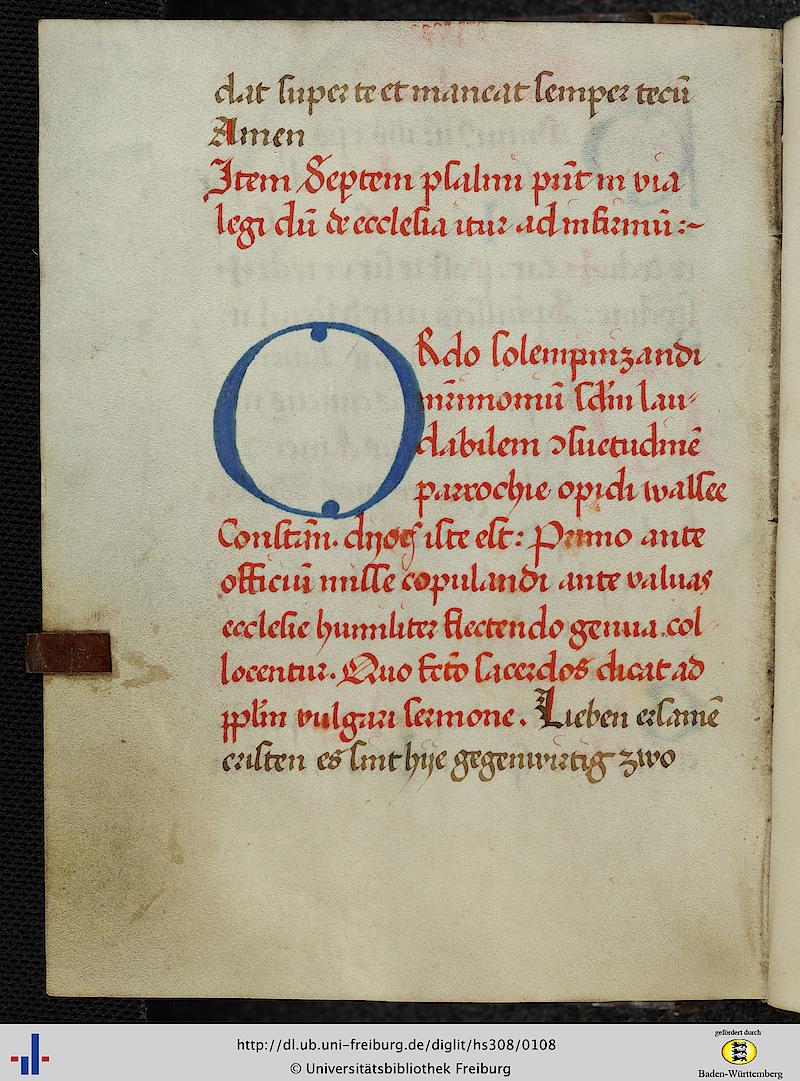 dat super te et maneat semper tecū
Amen
Item Septem psalmi pn̄t in via
legi dū de ecclesia itur ad infirmū :~
ORdo solempnizandi
mr̄imoniū scd'm lau⸗
dabilem ɔsuetudinē
parrochie opidi wallsee
Constan̄. dyoc̄ iste est: Primo ante
officiū misse copulandi ante valuas
ecclesie humiliter flectendo genua col
locentur. Quo fcō sacerdos dicat ad
pplm̄ vulgari sermone. Lieben ersamē
cristen es sint hije gegenwirtig zwo
http://dl.ub.uni-freiburg.de/diglit/hs308/0108
© Universitätsbibliothek Freiburg
gefördert durch
Baden-Württemberg